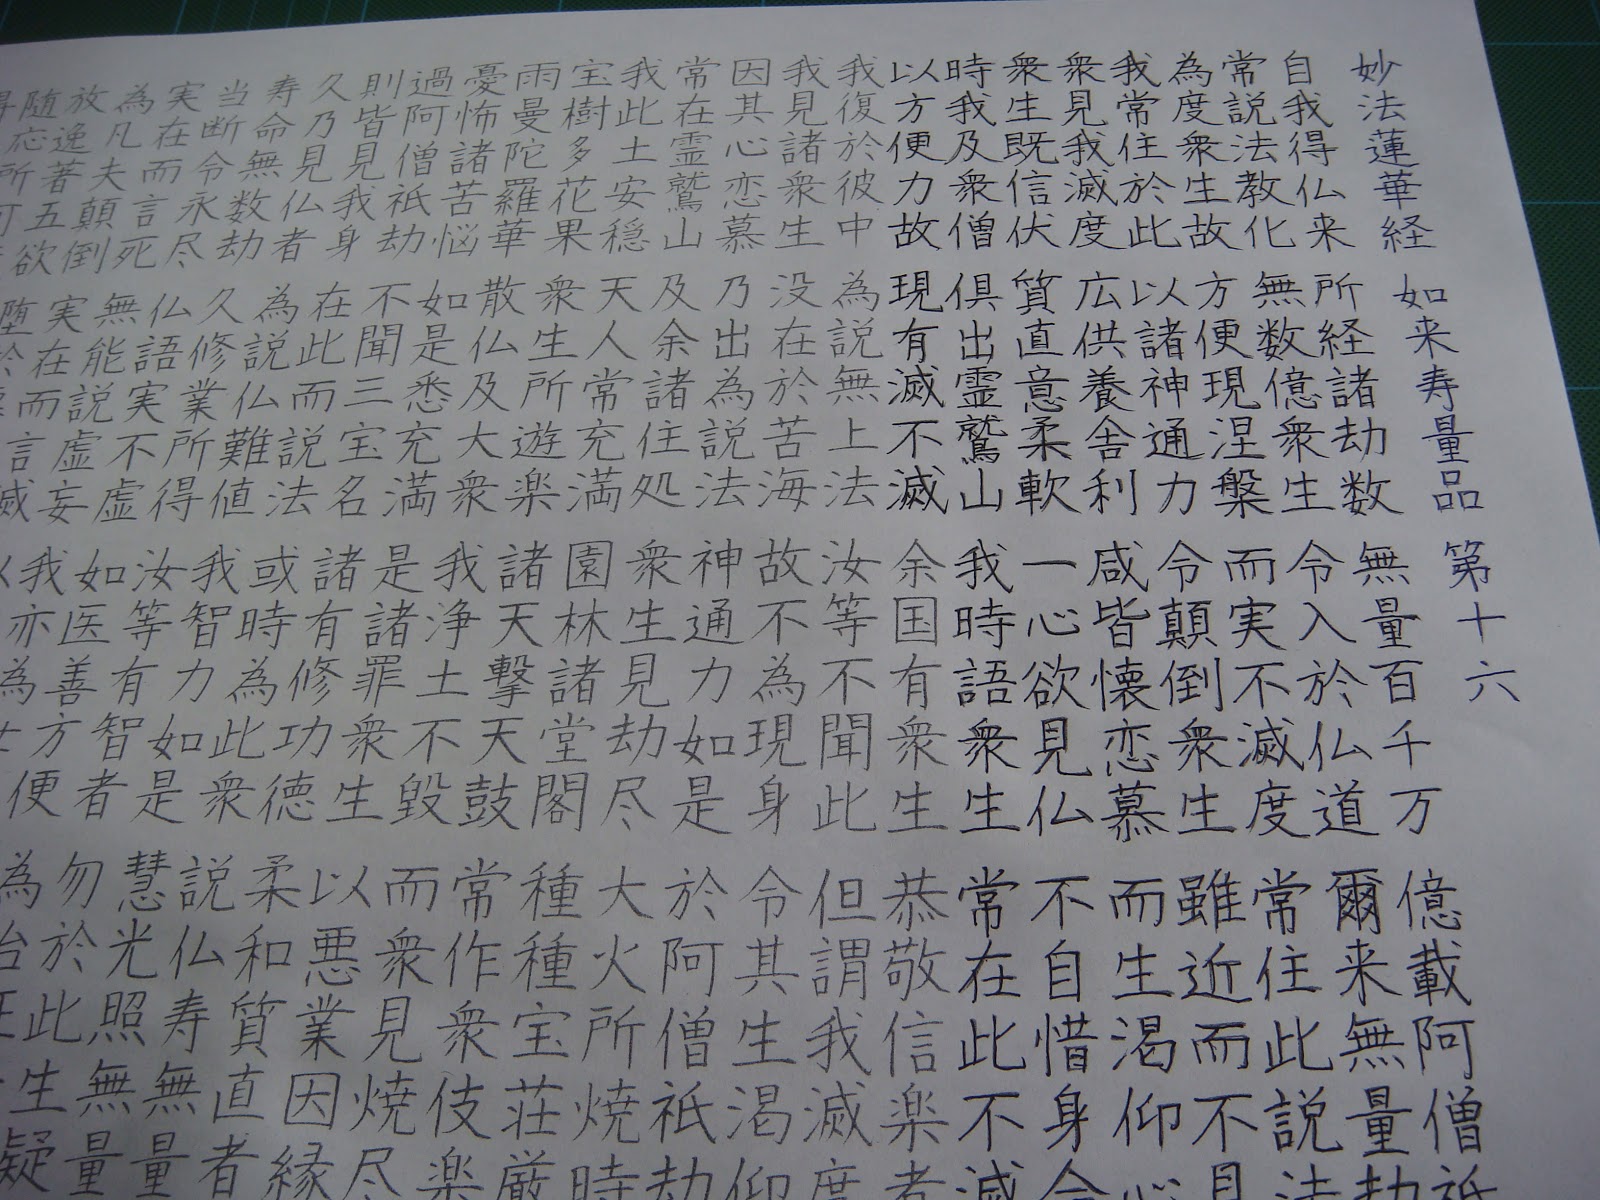 妙法蓮華経 如来寿量品 第十六
自我得仏来 所経諸劫数 無量百千万 億載阿僧祇
常説法教化 無数億衆生 令入於仏道 爾来無量劫
為度衆生故 方便現涅槃 而実不滅度 常住此説法
我常住於此 以諸神通力 令顛倒衆生 雖近而不見
衆見我滅度 広供養舎利 咸皆懐恋慕 而生渇仰心
衆生既信伏 質直意柔軟 一心欲見仏 不自惜身命
時我及衆僧 倶出霊鷲山 我時語衆生 常在此不滅
以方便力故 現有滅不滅 余国有衆生 恭敬信楽者
我復於彼中 為説無上法 汝等不聞此 但謂我滅度
我見諸衆生 没在於苦海 故不為現身 令其生渇仰
因其心恋慕 乃出為説法 神通力如是 於阿僧祇劫
常在霊鷲山 及余諸住処 衆生見劫尽 大火所焼時
我此土安穏 天人常充満 園林諸堂閣 種種宝荘厳
宝樹多花果 衆生所遊楽 諸天撃天鼓 常作衆伎楽
雨曼陀羅華 散仏及大衆 我浄土不毀 而衆見焼尽
憂怖諸苦悩 如是悉充満 是諸罪衆生 以悪業因縁
過阿僧祇劫 不聞三宝名 諸有修功徳 柔和質直者
則皆見我身 在此而説法 或時為此衆 説仏寿無量
久乃見仏者 為説仏難値 我智力如是 慧光照無量
寿命無数劫 久修業所得 汝等有智者 勿於此生疑
当断令永尽 仏語実不虚 如医善方便 為治
実在而言死 無能説虚妄 我亦為
為凡夫顛倒 実在而言滅
放逸著五欲 堕於
随応所可